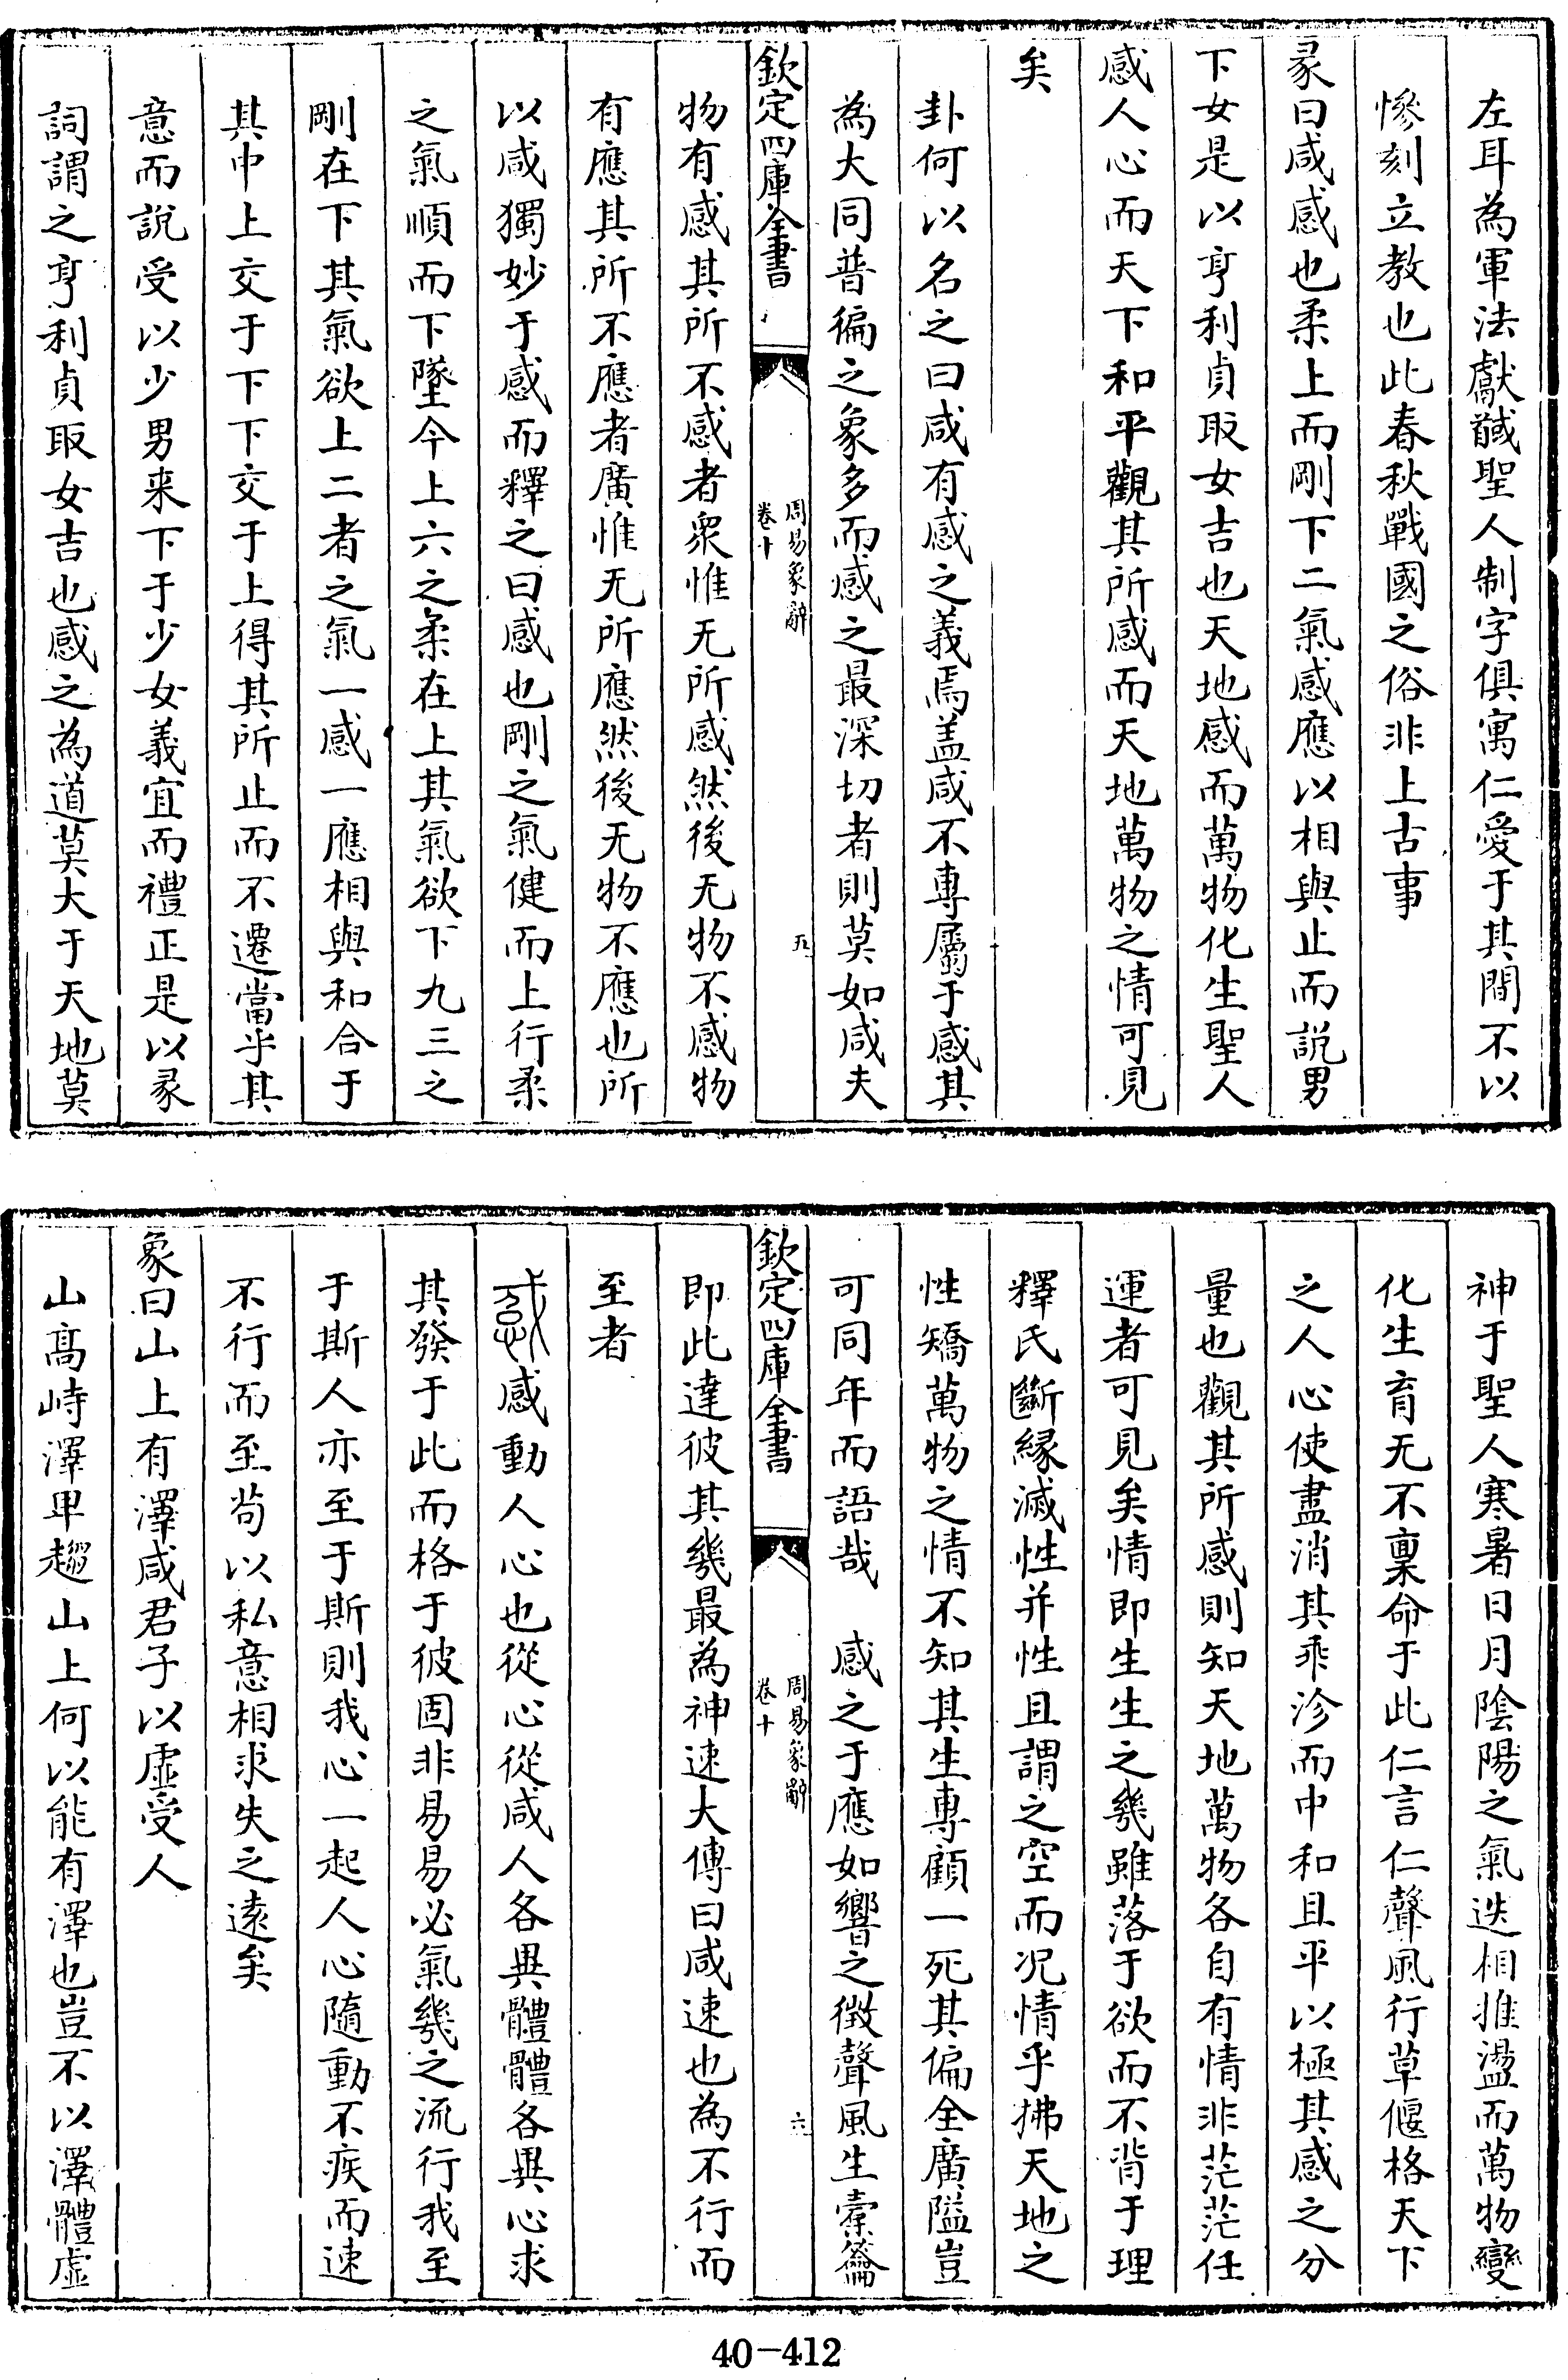 左耳為軍法獻馘聖人制字俱寓仁愛于其間不以
慘刻立教也此春秋戰國之俗非上古事
彖曰咸感也柔上而剛下二氣感應以相與止而說男
下女是以亨利貞取女吉也天地感而萬物化生聖人
感人心而天下和平觀其所感而天地萬物之情可見
矣
卦何以名之曰咸有感之義焉盖咸不專屬于感其
為大同普徧之象多而感之最深切者則莫如咸夫
欽定四庫全書
周易象辭
卷十
五
物有感其所不感者衆惟无所感然後无物不感物
有應其所不應者廣惟无所應然後无物不應也所
以咸獨妙于感而釋之曰感也剛之氣健而上行柔
之氣順而下墜今上六之柔在上其氣欲下九三之
剛在下其氣欲上二者之氣一感一應相與和合于
其中上交于下下交于上得其所止而不遷當乎其
意而說受以少男来下于少女義宜而禮正是以彖
詞謂之亨利貞取女吉也感之為道莫大于天地莫
神于聖人寒暑日月陰陽之氣迭相推盪而萬物變
化生育无不稟命于此仁言仁聲風行草偃格天下
之人心使盡消其乖沴而中和且平以極其感之分
量也觀其所感則知天地萬物各自有情非茫茫任
運者可見矣情即生生之幾雖落于欲而不背于理
釋氏斷緣滅性并性且謂之空而况情乎拂天地之
性矯萬物之情不知其生專顧一死其偏全廣隘豈
可同年而語哉　感之于應如響之徴聲風生橐籥
欽定四庫全書
周易象辭
卷十
六
即此達彼其幾最為神速大傳曰咸速也為不行而
至者
感動人心也從心從咸人各異體體各異心求
其發于此而格于彼固非易易必氣幾之流行我至
于斯人亦至于斯則我心一起人心隨動不疾而速
不行而至茍以私意相求失之遠矣
象曰山上有澤咸君子以虛受人
山高峙澤卑趨山上何以能有澤也豈不以澤體虛
40-412